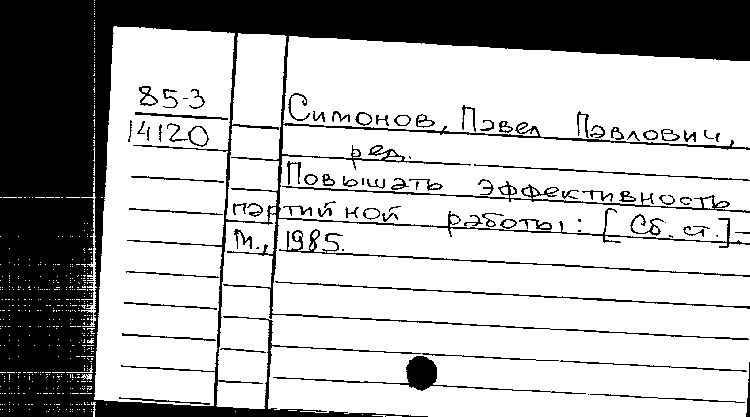 85-3
14120
Симонов, Павел Павлович,
ред.
Повышать эффективность
партийной работы: [Сб. ст.].-
М., 1985.